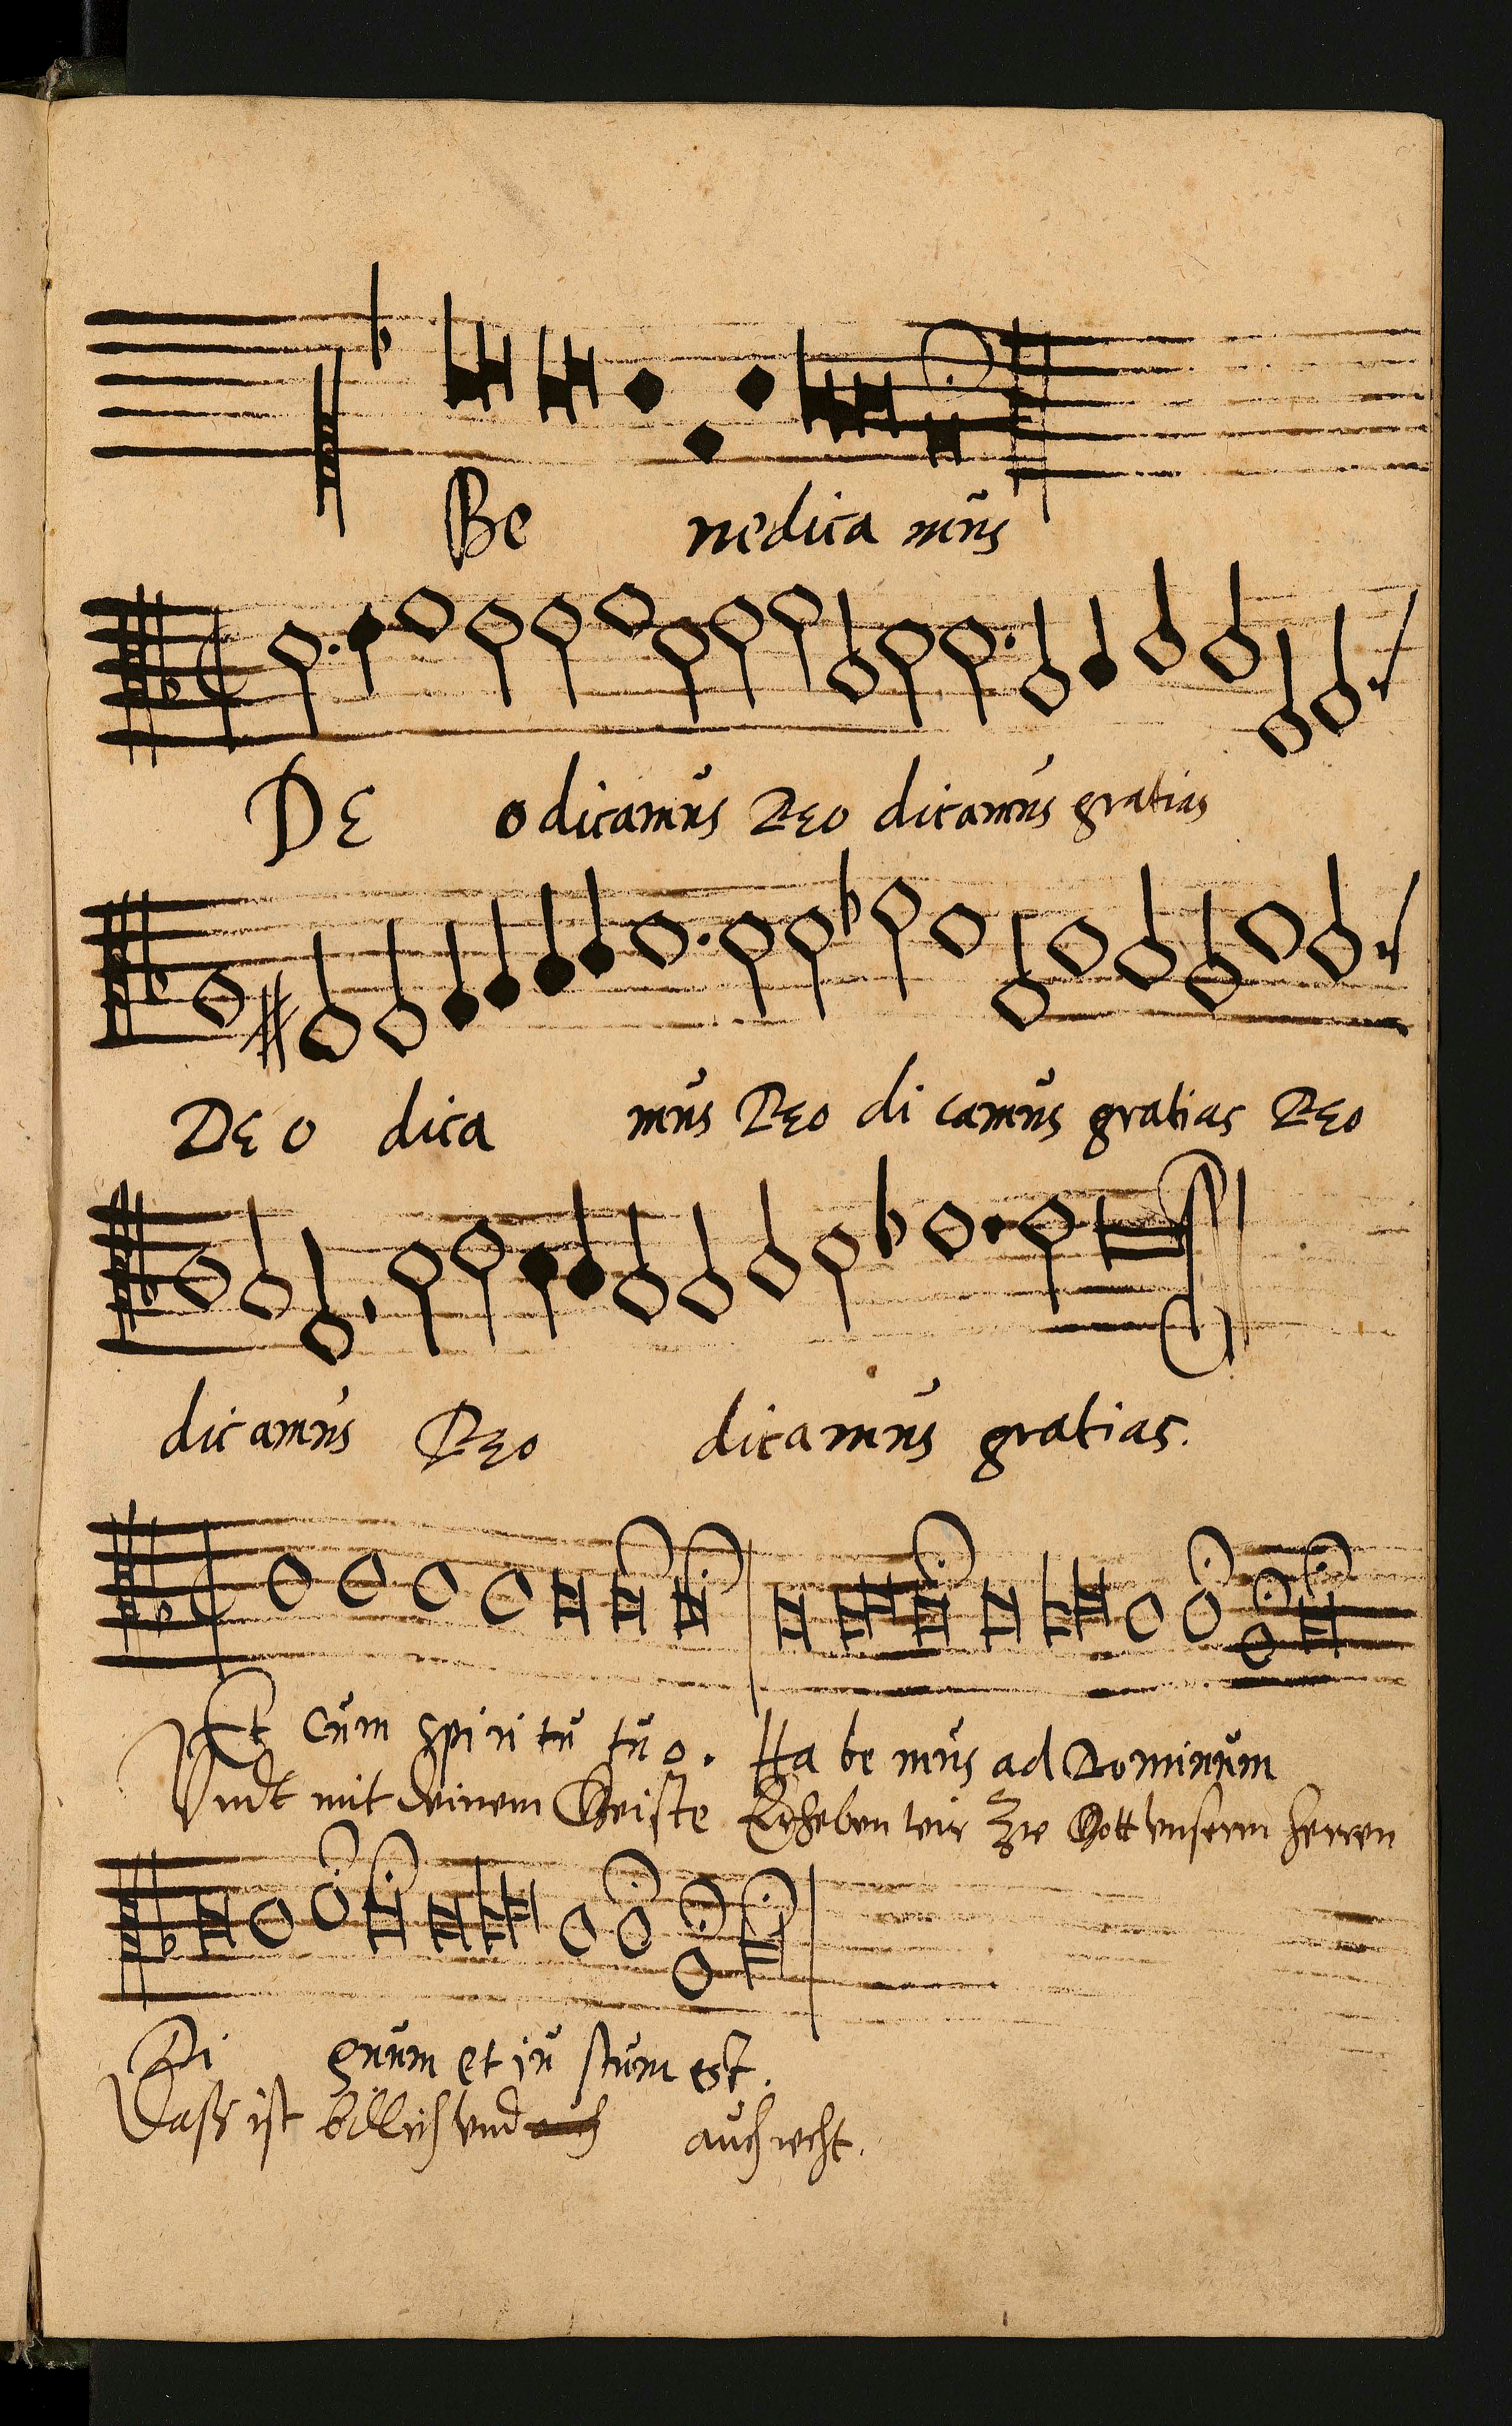 Be nedica mus
DE o dicamus Deo dicamus gratias
DE o dica mus Deo di camus gratias Deo
dicamus Deo dicamus gratias.
Et cum spiri tu tuo. Ha be mus ad Dominum
Vndt mit deinem Geiste Erheben wir Zue Gott vnserm herren
Di gnum et iu stum est.
Daß ist billich vnd auch auch recht.